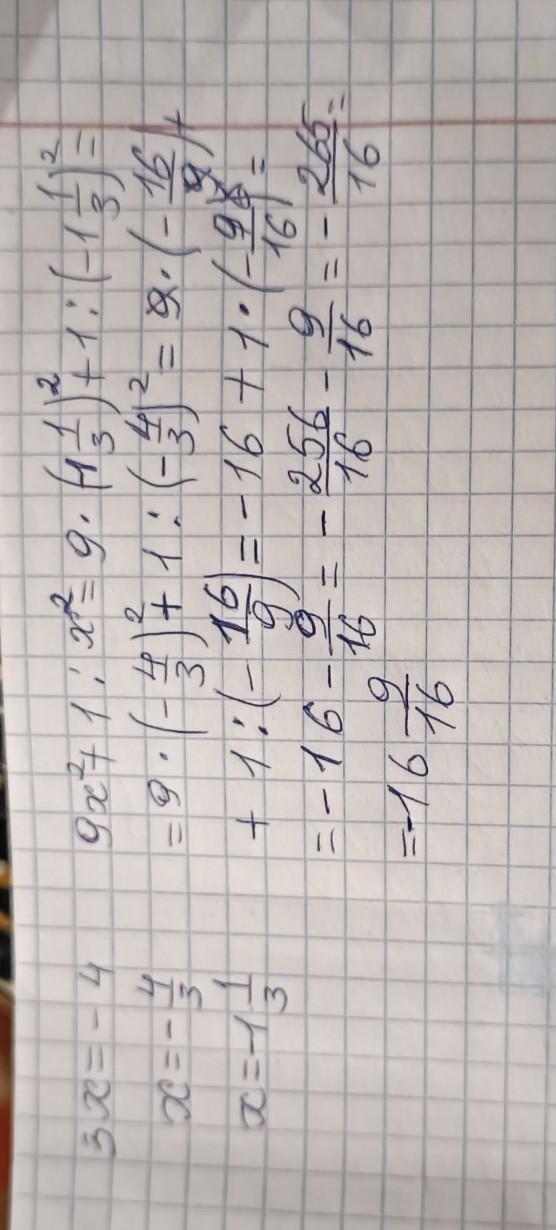 3x = - 4
x = - 4/3
x = -1 1/3
9x² + 1 : x² = 9 · (-1 1/3)² + 1 : (-1 1/3)² =
= 9 · (- 4/3)² + 1 : (- 4/3)² = 9 · (- 16/9) +
+ 1 : (- 16/9) = - 16 + 1 · (- 9/16) =
= - 16 - 9/16 = - 256/16 - 9/16 = - 265/16 =
= -16 9/16